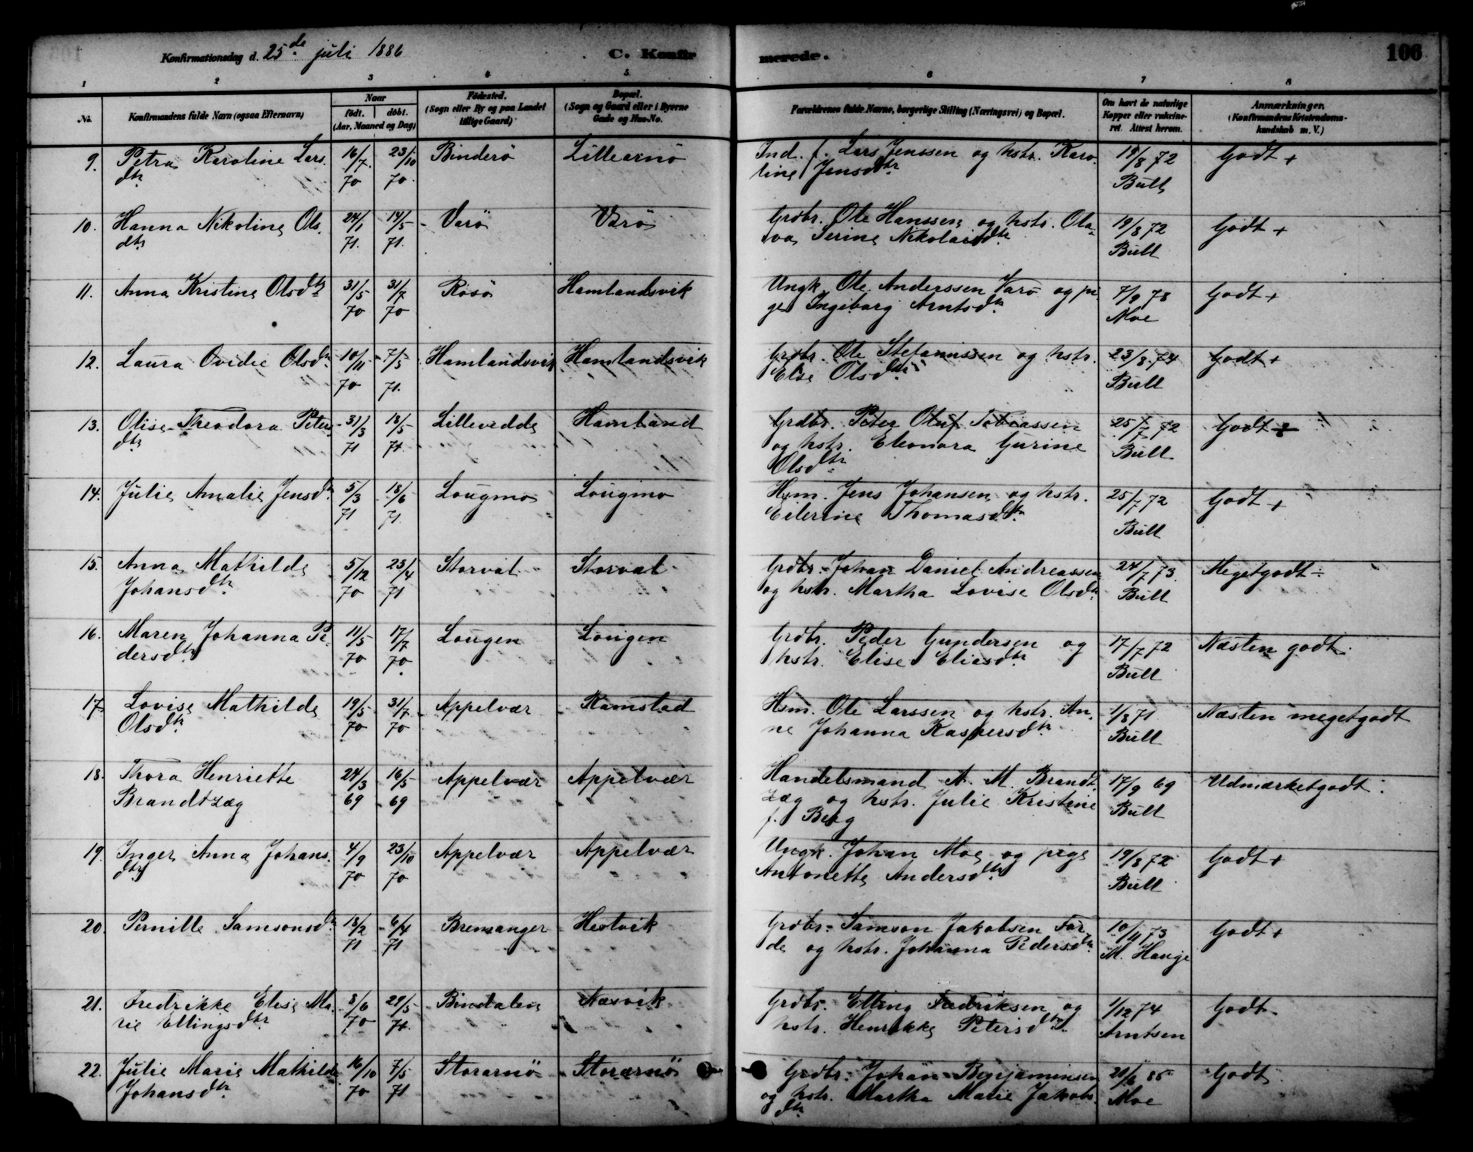 Konfirmationsdag d. 25de juli 1886
C. Konfirmerede.
106
1 2 3 4 5 6 7 8
No.
Konfirmandens fulde Navn (ogsaa Efternavn)
Naar
født. døbt.
(Aar, Maaned og Dag)
Fødested.
(Sogn eller By og paa Landet
tillige Gaard)
Bopæl.
(Sogn og Gaard eller i Byerne
Gade og Hus-No.
Forældrenes fulde Navne, borgerlige Stilling (Næringsvei) og Bopæl.
Om havt de naturlige
Kopper eller vakcineret. Attest herom.
Anmærkninger.
(Konfirmandens Kristendomskundskab m. V.)
9. Petra Karoline Lars
dtr 16/7 70 23/10 70 Binderö Lillearnö Ind. f. Lars Jenssen og hstr. Karo
line Jensdtr 18/8 72 Bull Godt +
10. Hanna Nikoline Ols
dtr 24/1 71 14/5 71 Varö Varö Grdbr. Ole Hanssen og hstr. Ola
va Serine Nikolaisdtr 19/8 72 Bull Godt +
11. Anna Kristine Olsdtr 31/5 70 31/7 70 Rösö Hamlandsvik Ungk. Ole Anderssen Varö og pi
ge Ingeborg Arntsdtr 7/9 78 Moe Godt +
12. Laura Ovidie Olsdtr 10/11 70 7/5 71 Hamlandsvik Hamlandsvik Grdbr. Ole Stefanussen og hstr.
Else Olsdtr. 23/8 74 Bull Godt +
13. Olise Theodora Peters
dtr 31/3 71 18/5 71 Lillevedde Hamland Grdbr. Peter Oluf Tobiassen
og hstr. Eleonora Gurine
Olsdtr 25/7 72 Bull Godt +
14. Julie Amalie Jensdtr 5/3 71 18/6 71 Lougmo Lougmo Hsm. Jens Johansen og hstr.
Eilerine Thomasdtr. 25/7 72 Bull Godt +
15. Anna Mathilde
Johansdtr. 5/12 70 23/4 71 Storval Storval Grdbr. Johan Daniel Andreassen
og hstr. Martha Lovise Olsdtr 24/7 73. Bull Megetgodt
16. Maren Johanna Pe
dersdtr. 11/5 70 17/7 70 Lougen Lougen Grdbr. Peder Gundersen og
hstr. Elise Eliesdtr 17/7 72 Bull Næsten godt.
17. Lovise Mathilde
Olsdtr. 19/5 70 31/7 70 Appelvær Ramstad Hsm. Ole Larssen og hstr. An
ne Johanna Kaspersdtr 1/8 71 Bull Næsten megetgodt
18. Thora Henriette
Brandtzæg 24/3 69 16/5 69 Appelvær Appelvær Handelsmand A. M. Brandt
zæg og hstr. Julie Kristine
f. Berg 17/9 69 Bull Udmærketgodt.
19. Inger Anna Johans
dtr 4/9 70 23/10 70 Appelvær Appelvær Ungk. Johan Moe og pige
Antonette Andersdtr. 19/8 72 Bull Godt +
20. Pernille Samsonsdtr 18/2 71 6/4 71 Bremanger Hestvik Grdbr. Samson Jakobsen För
de og hstr. Johanna Pedersdtr 73 M. Hauge Godt +
21. Fredrikke Elise Ma
rie Ellingsdtr 70 28/5 71 Bindalen Næsvik Grdbr. Elling Fredriksen og
hstr. Henrikke Petersdtr 1/12 74 Arntsen Godt
22. Julie Marie Mathilde
Johansdtr. 16/10 70 7/5 71 Storarnö Storarnö Grdbr. Johan Benjaminsen
og hstr. Martha Marie Jakobs
dtr 85 Moe Godt